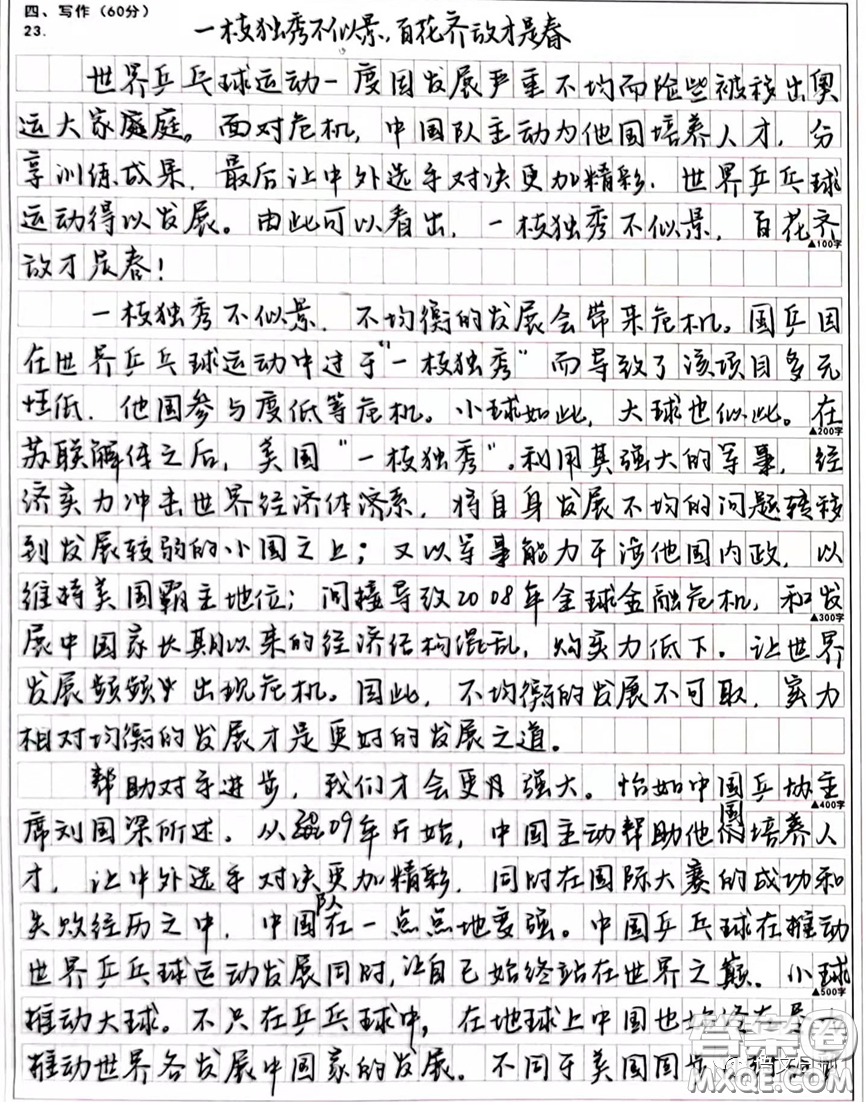 四、写作（60分）
23.
一枝独秀不似景，百花齐放才是春
世界乒乓球运动一度因发展严重不均而险些被移出奥
运大家庭。面对危机，中国队主动为他国培养人才，分
享训练成果，最后让中外选手对决更加精彩，世界乒乓球
运动得以发展。由此可以看出，一枝独秀不似景，百花齐
▲100字
放才是春！
一枝独秀不似景，不均衡的发展会带来危机。国乒因
在世界乒乓球运动中过于“一枝独秀”而导致了该项目多元
性低、他国参与度低等危机。小球如此，大球也似此。在
▲200字
苏联解体之后，美国“一枝独秀”，利用其强大的军事，经
济实力冲击世界经济体系，将自身发展不均的问题转移
到发展较弱的小国之上；又以军事能力干涉他国内政，以
维持美国霸主地位；间接导致2008年全球金融危机，和发
▲300字
展中国家长期以来的经济结构混乱，购买力低下。让世界
发展频频出现危机。因此，不均衡的发展不可取，实力
相对均衡的发展才是更好的发展之道。
帮助对手进步，我们才会更强大。恰如中国乒协主
▲400字
席刘国梁所述。从09年开始，中国主动帮助他国培养人
才，让中外选手对决更加精彩，同时在国际大赛的成功和
失败经历之中，中国队在一点点地变强。中国乒乓球在推动
世界乒乓球运动发展同时，让自己始终站在世界之巅。小球
▲500字
推动大球。不只在乒乓球中，在地球上中国也
推动世界各发展中国家的发展。不同于美国
答案圈
MXQE.COM